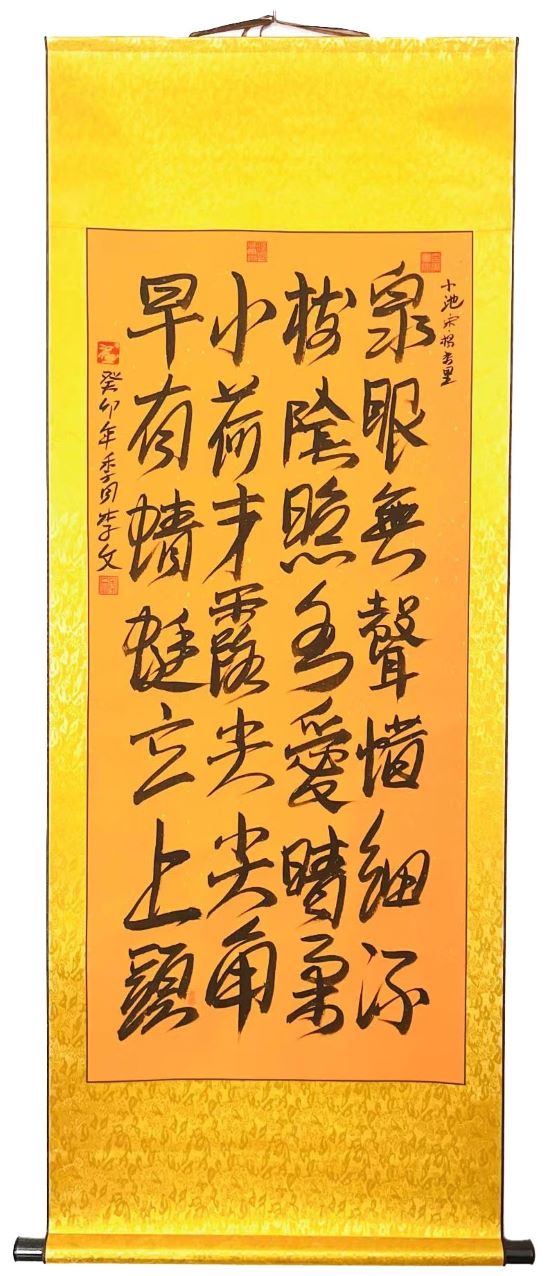 小池 宋 楊萬里
泉眼無聲惜細流
樹陰照水愛晴柔
小荷才露尖尖角
早有蜻蜓立上頭
癸卯年季月 文